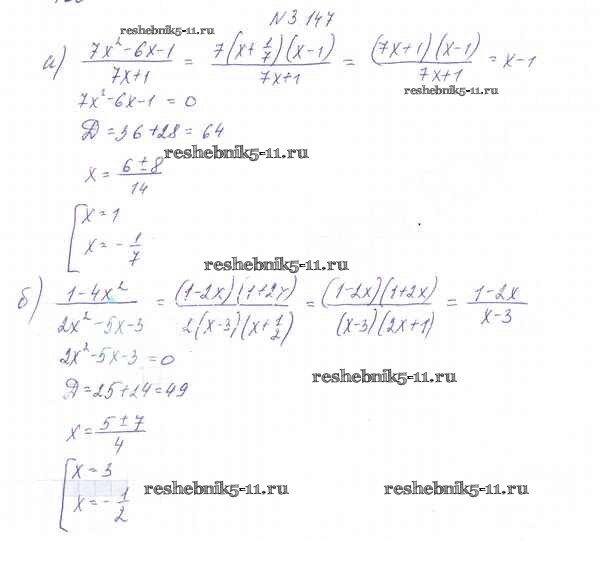 №3 147
reshebnik5-11.ru
а) (7x²-6x-1)/(7x+1) = (7(x+1/7)(x-1))/(7x+1) = ((7x+1)(x-1))/(7x+1) = x-1
reshebnik5-11.ru
7x²-6x-1 = 0
Д = 36+28 = 64
reshebnik5-11.ru
x = (6±8)/14
[x = 1
x = -1/7
reshebnik5-11.ru
б) (1-4x²)/(2x²-5x-3) = ((1-2x)(1+2x))/(2(x-3)(x+1/2)) = ((1-2x)(1+2x))/((x-3)(2x+1)) = (1-2x)/(x-3)
2x²-5x-3 = 0
reshebnik5-11.ru
Д = 25+24 = 49
x = (5±7)/4
[x = 3
x = -1/2
reshebnik5-11.ru reshebnik5-11.ru